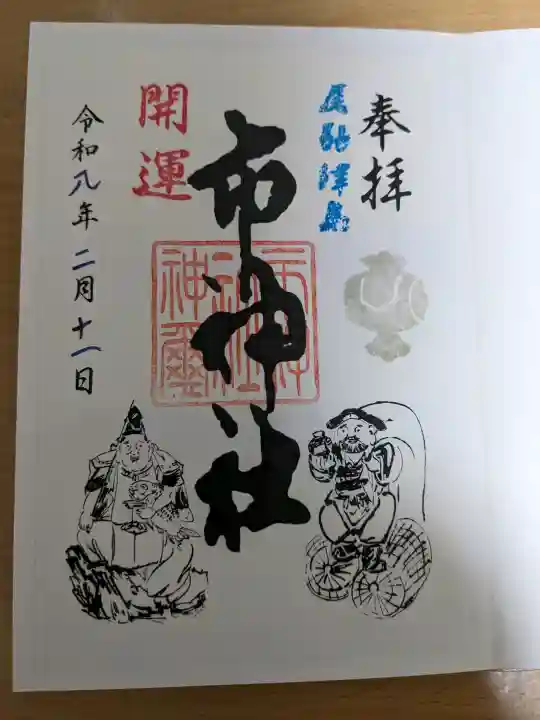 奉拝
尾張津島
市神社
開運
市神社神璽
令和八年二月十一日